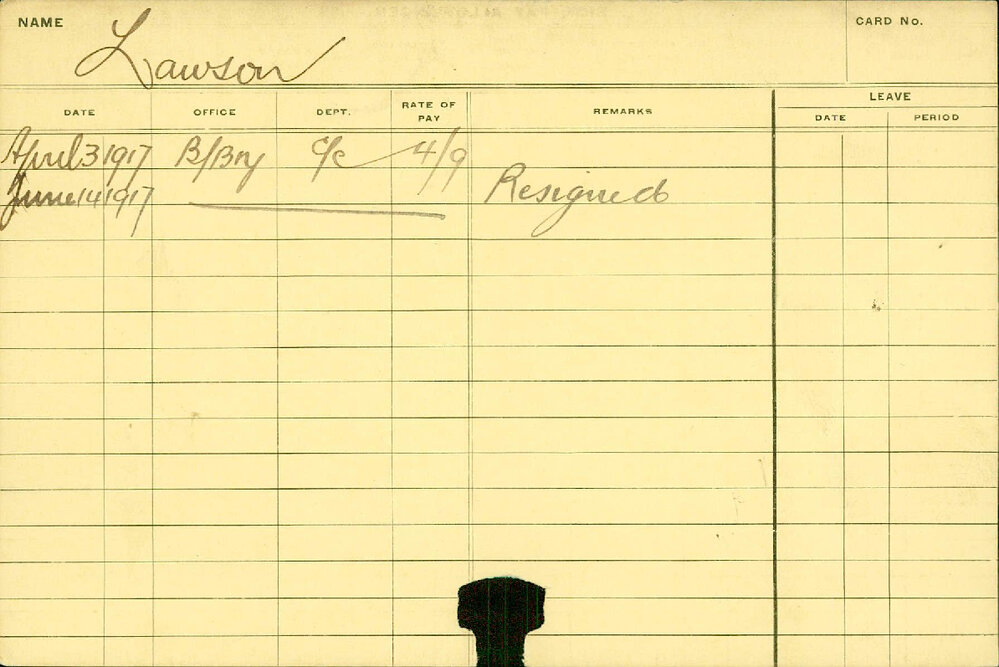 NAME
Lawson
CARD No.
DATE OFFICE DEPT. RATE OF PAY REMARKS LEAVE
DATE PERIOD
April 3 1917 B/Bry C/c 4/9
June 14 1917 Resigned